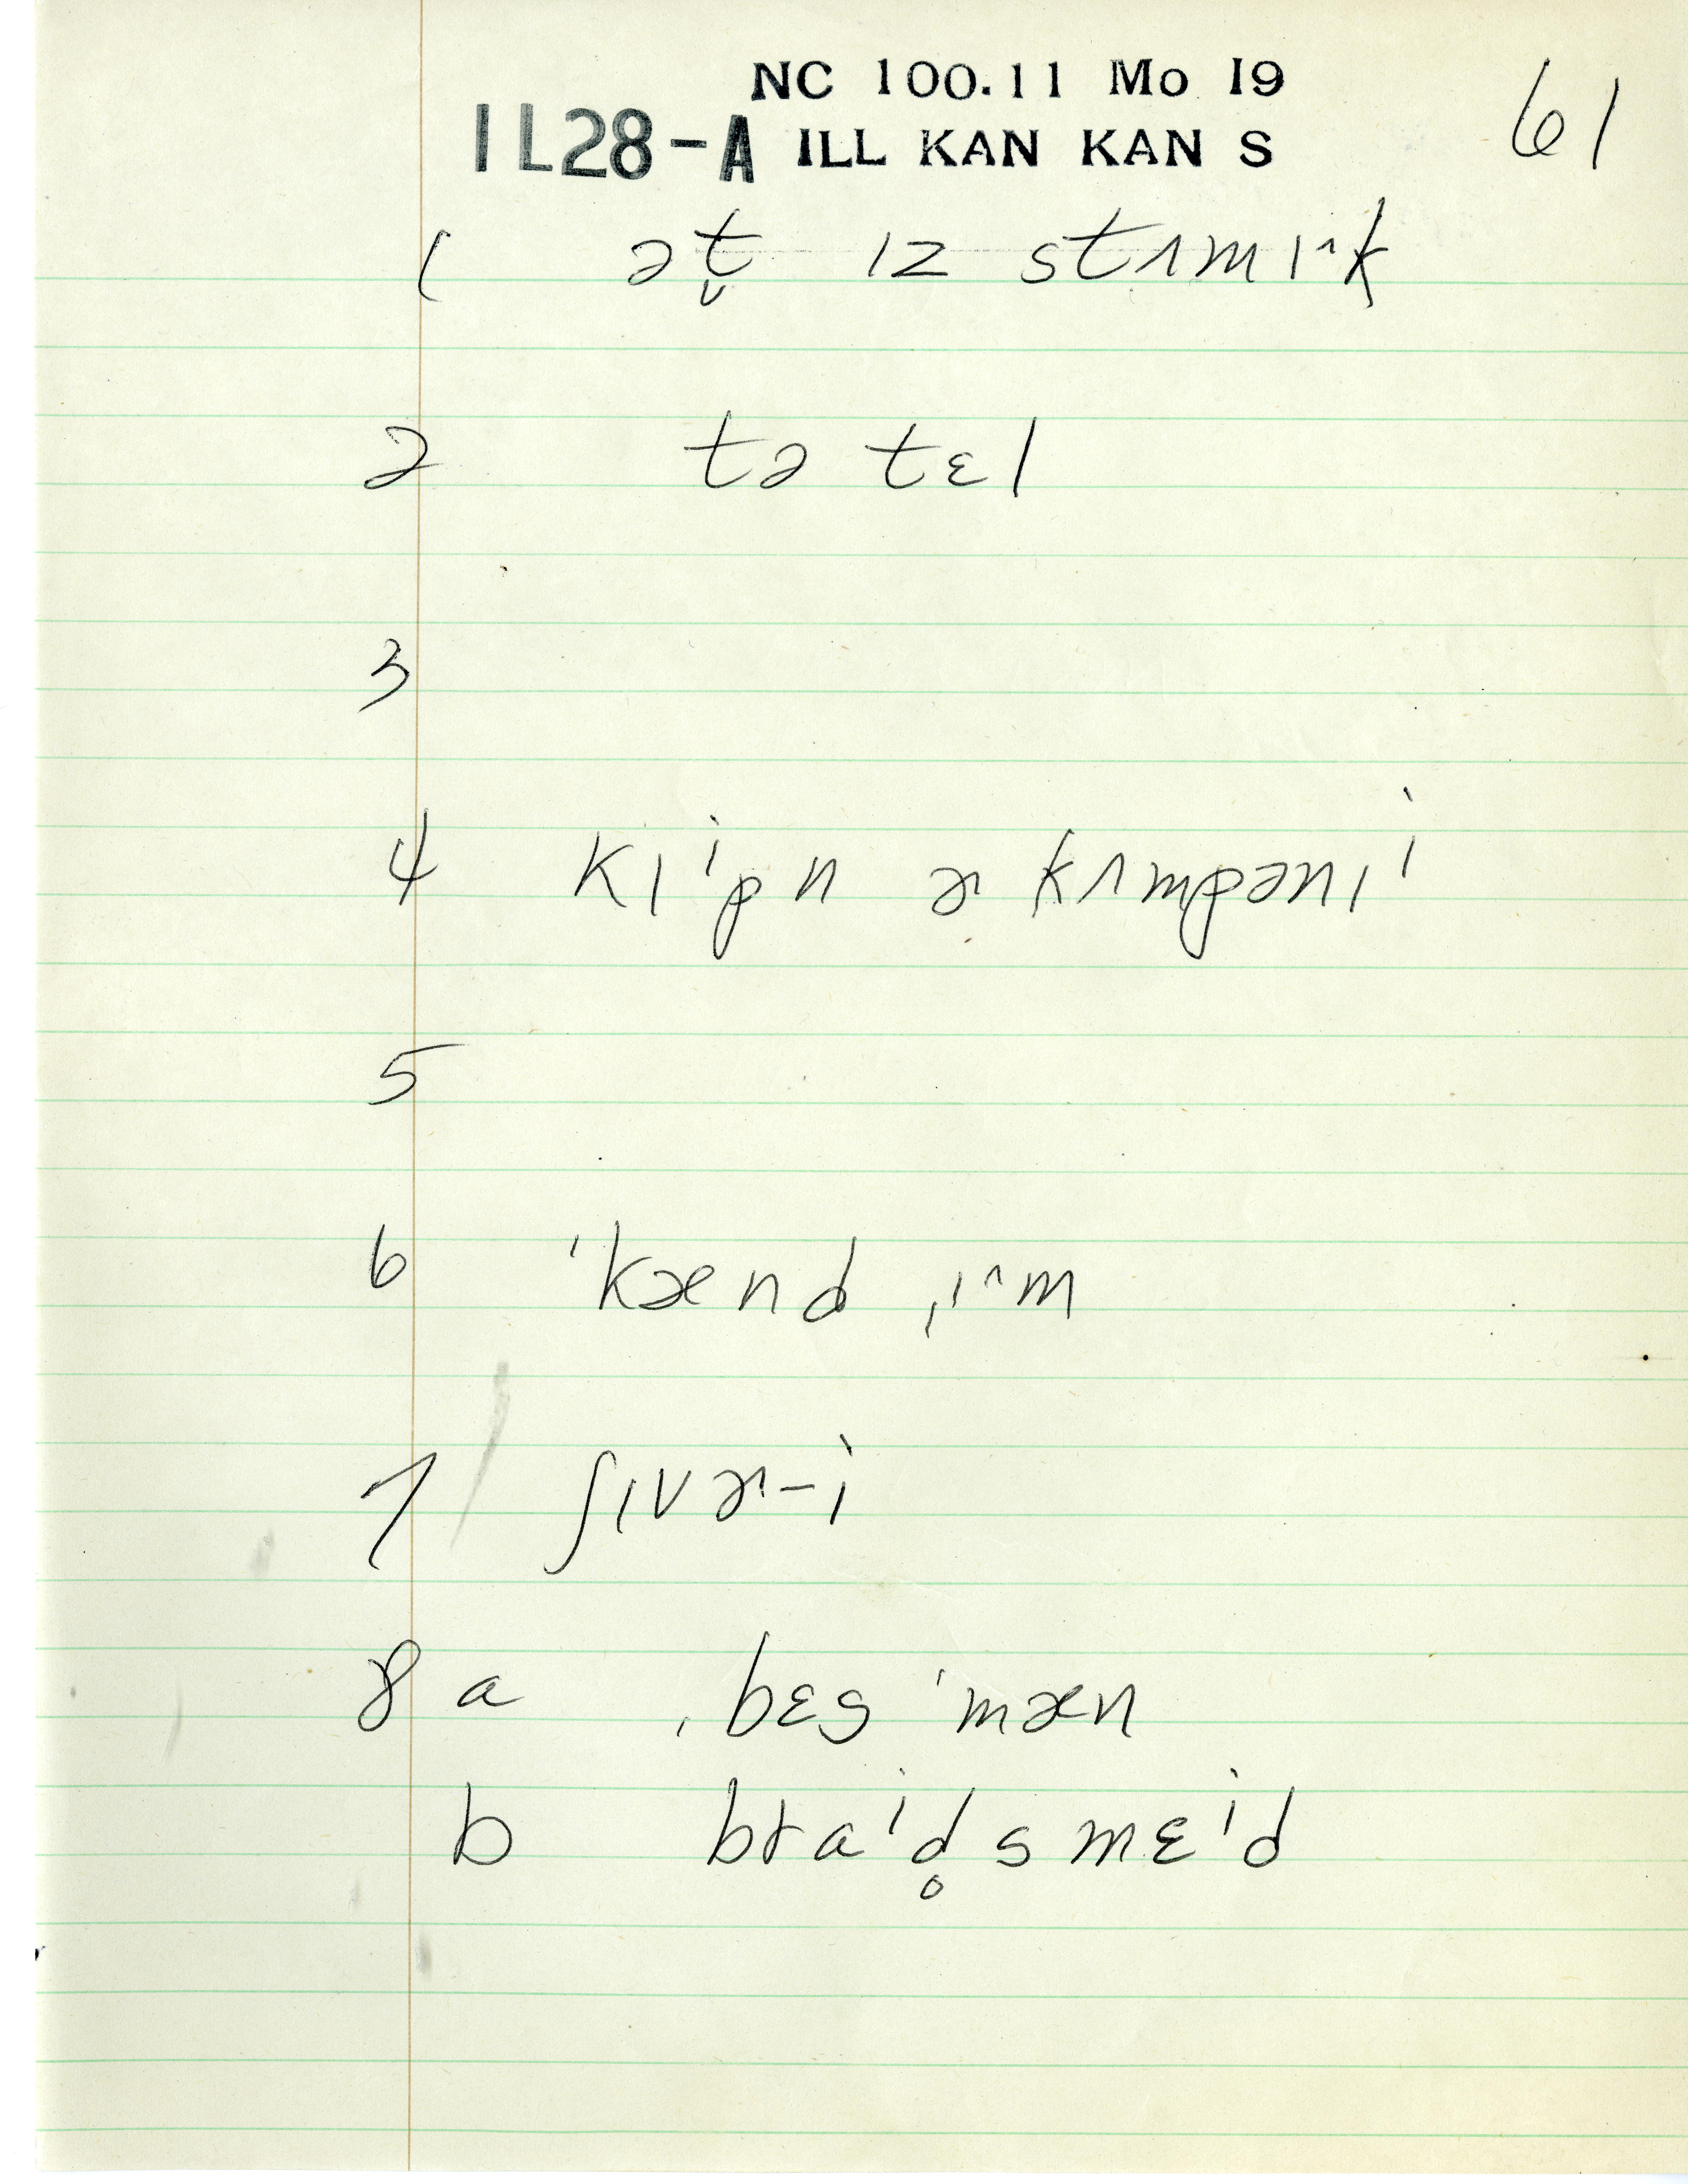 NC 100.11 Mo 19
IL28-A ILL KAN KAN S 61
1 ət̬ ɪz stʌmɪ˄k
2 tə tɛl
3
4 kɪⁱpn ɚ kʌmpənɪⁱ
5
6 ˈkænd ˌɪ˄m
7 ʃɪvɚ-i
8 a ˌbɛs ˈmæn
b braⁱd̥smɛⁱd